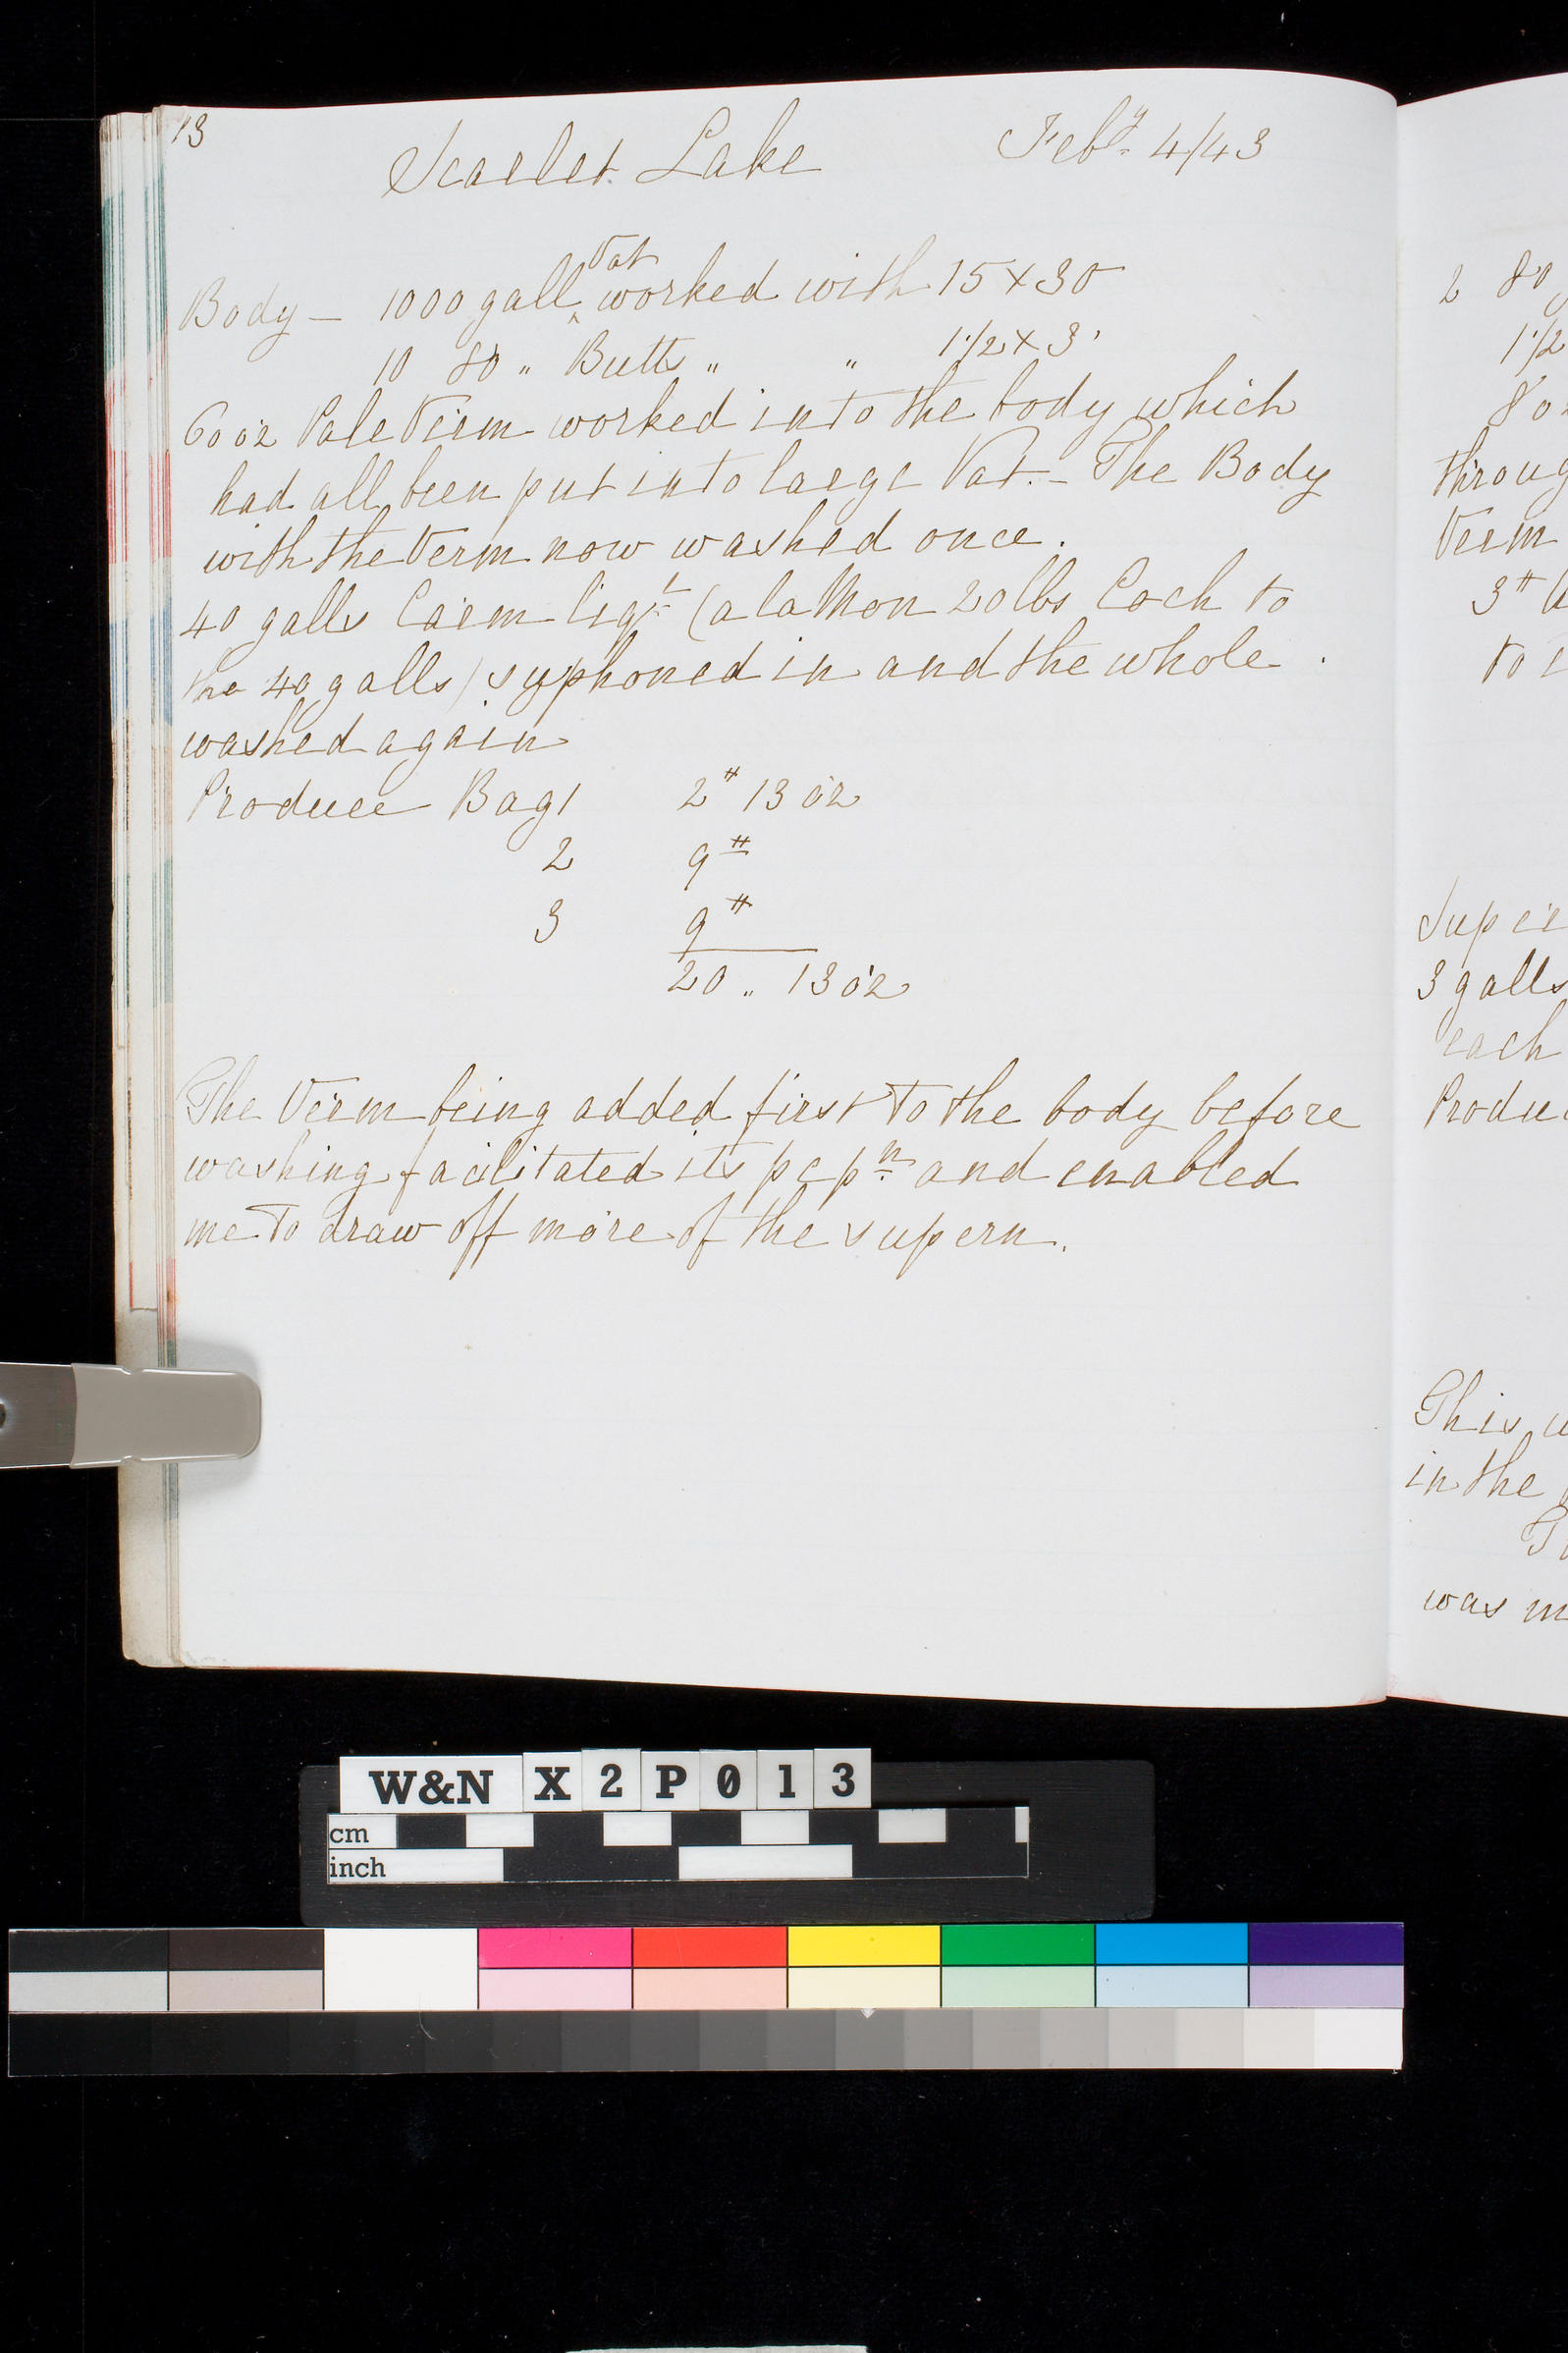 13
Scarlet Lake Feb.y 4/43
Body — 1000 gall Vat worked with 15 x 30
10 80 " Butts " " 1 1/2 x 3
60 oz Pale Verm worked into the body which
had all been put into large Vat. - The Body
with the Verm now washed once.
40 galls Carm liqr (a la Mon 20 lbs Coch to
the 40 galls) syphoned in and the whole
washed again
Produce Bag 1 2# 13 oz
2 9#
3 9#
20 .. 13 oz
The Verm being added first to the body before
washing facilitated its pcpn and enabled
me to draw off more of the supern.
2 80
1 1/2
8 oz
throug
Verm
3#
to
Super
3 galls
each
Produc
This w
in the
was m
W&N X2P013
cm
inch